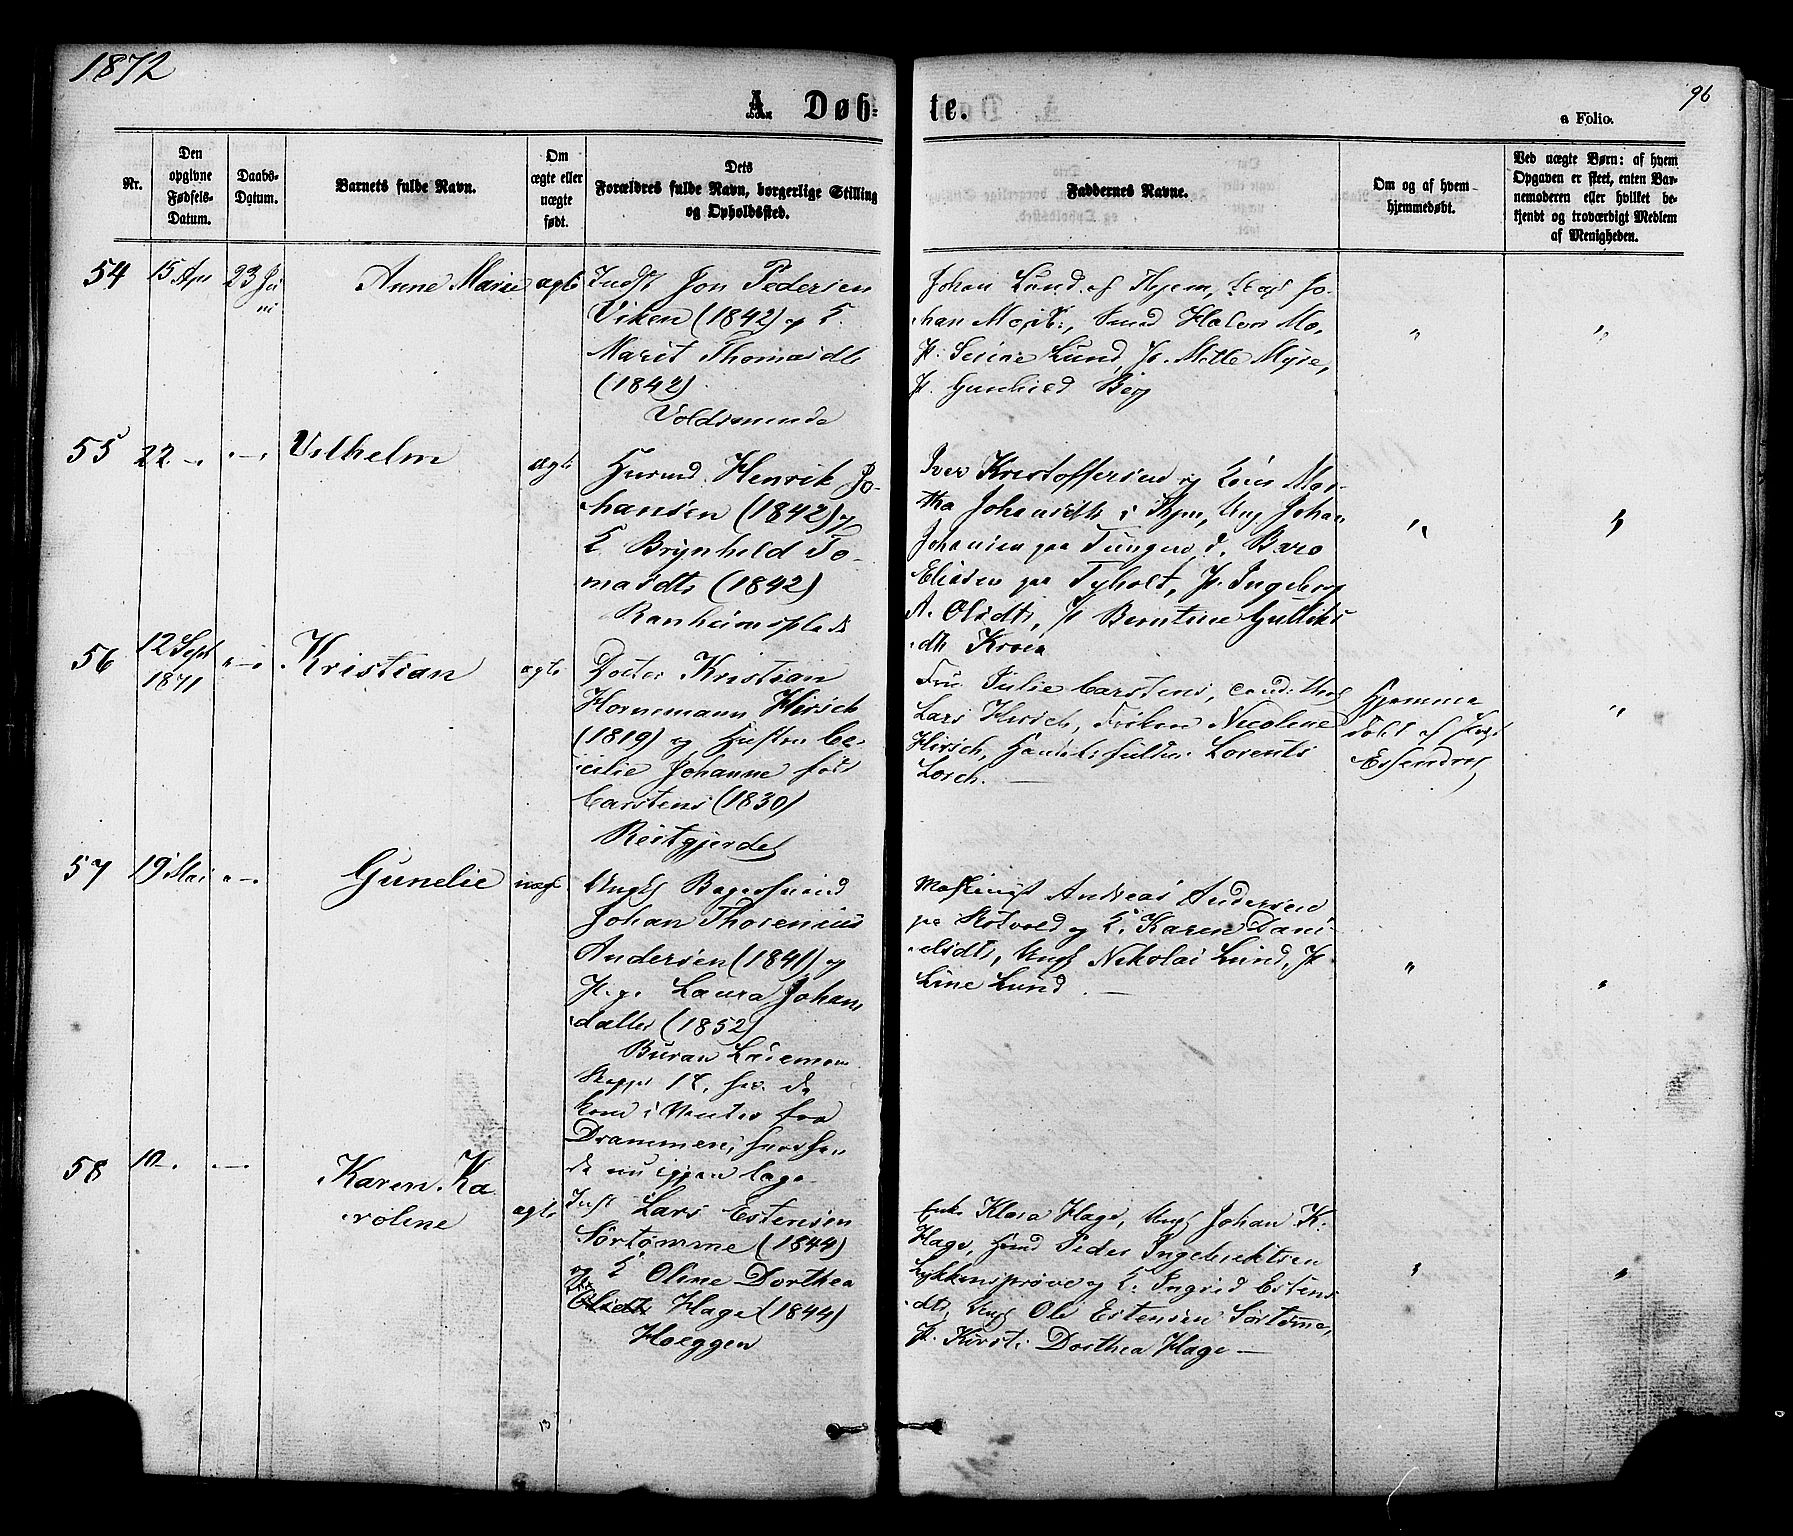 1872
96
A. Døb-
te.
a Folio.
Nr.
Den
opgivne
Fødsels-
Datum.
Daabs-
Datum.
Barnets fulde Navn.
Om
ægte eller
uægte
født.
Dets
Forældres fulde Navn, borgerlige Stilling
og Opholdssted.
Faddernes Navne.
Om og af hvem
hjemmedøbt.
Ved uægte Børn: af hvem
Opgaven er skeet, enten Bar-
nemoderen eller hvilket be-
kjendt og troværdigt Medlem
af Menigheden.
54 15 Apr 23 Ju-
ni
Anne Marie ægte
Indst Jon Pedersen
Viken (1842) og K.
Marit Thomasdt
(1842)
Voldsminde
Johan Lund af Hjem,
Johan Mo,
P. Serine Lund, P. Mette Myre,
P. Gunhild Berg
" "
55 22 - . - . Vilhelm
ægte
Husmd. Henrik Jo-
hansen (1842) og
K Brynhild To-
masdt (1842)
Ranheimsplads
Iver Kristoffersen og Mar-
tha Johansdt i Ung. Johan
Johansen paa
Eliesen paa Tyholt, P. Ingeborg
A. Olsdt, P Berntine
dt.
" "
56 12 Sept
1871 " - " Kristian ægte
Doctor Kristian
Hornemann Hirsch
(1819) og Hustru Ce-
cilie Johanne født
Carstens (1830)
Fru Julie Carstens, cand. theol
Lars Hirsch, Frøken Nicoline
Hirsch, Lorents
Lorch. -
Hjemme
døbt af
"
57 19 Mai " - " Gunelie uægte
Ungk Bagersvend
Johan Thorenius
Andersen (1841) og
P. Laura Johans-
datter (1852)
Buran
18,
kom i Vinter fra
Drammen,
nu igjen
Andreas Andersen
paa Rotvold og K. Karen Dani-
elsdt, Ungk Nikolai Lund, P.
Line Lund. -
" "
58 10 - . " - " Karen Ka-
roline ægte
Indst Lars Estensen
Sørtømme (1844)
og K Oline Dorthea
Hage (1844)
Hoeggen
Enke Klara Hage, Ungk Johan K.
Hage, Hmd Peder Ingebriktsen
Lykkensprøve og K. Ingrid Estens-
dt, Ungk Ole Estensen Sørtømme,
P. Kirsti Dorthea Hage -
" "
13